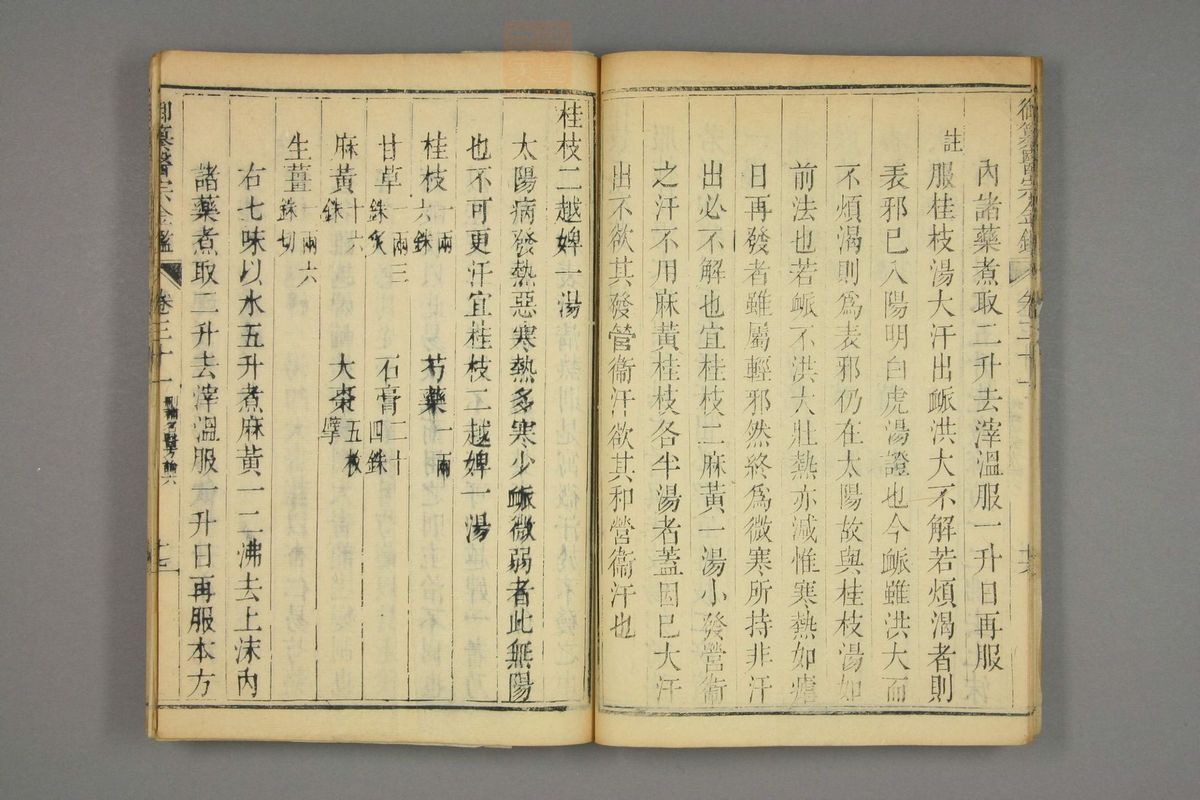 御纂醫宗金鑑 卷三十一 十六
內諸藥煮取二升去滓溫服一升日再服
註
服桂枝湯大汗出脈洪大不解若煩渴者則
表邪已入陽明白虎湯證也今脈雖洪大而
不煩渴則為表邪仍在太陽故與桂枝湯如
前法也若脈不洪大壯熱亦減惟寒熱如瘧
日再發者雖屬輕邪然終為微寒所持非汗
出必不解也宜桂枝二麻黃一湯小發營衞
之汗不用麻黃桂枝各半湯者蓋因已大汗
出不欲其發營衞汗欲其和營衞汗也
桂枝二越婢一湯
太陽病發熱惡寒熱多寒少脈微弱者此無陽
也不可更汗宜桂枝二越婢一湯
桂枝一兩六銖 芍藥一兩
甘草一兩三銖炙 石膏二十四銖
麻黃十六銖 大棗五枚擘
生薑一兩六銖切
右七味以水五升煮麻黃一二沸去上沫內
諸藥煮取二升去滓溫服一升日再服本方
御纂醫宗金鑑 卷三十一 十七